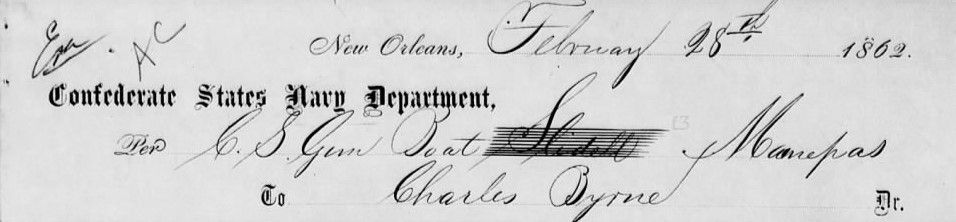 Exa. A C
New Orleans, February 28th 1862.
Confederate States Navy Department,
Per C. S. Gun Boat Slidell Manepas
To Charles Byrne Dr.